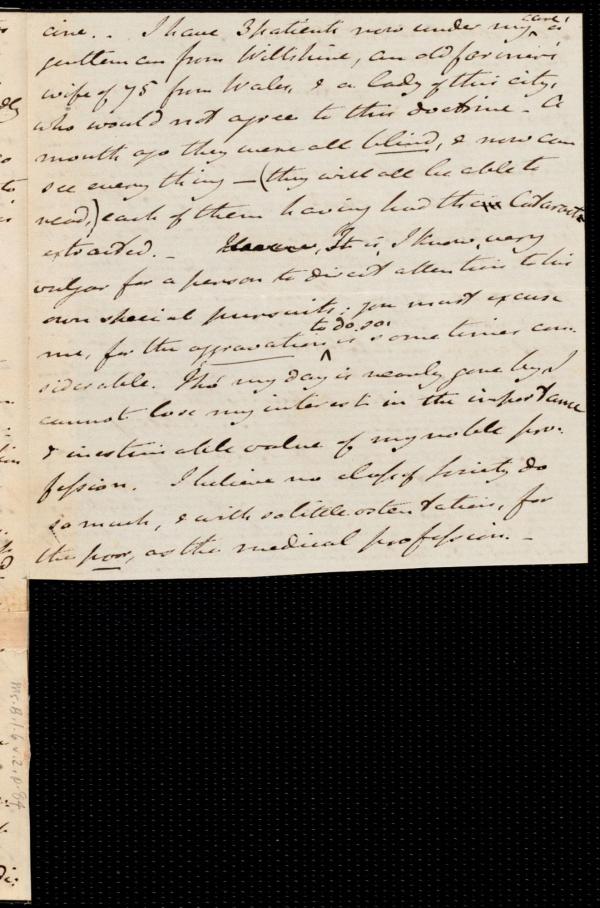 care!
cine.. I have 3 patients now under my ^ a
gentleman from Wiltshire, an old farmer's
wife of 75 from Wales, & a lady of this city,
who would not agree to this doctrine - A
month ago they were all blind, & now can
see every thing — (they will all be able to
read,) each of them having had the Cataracts
extracted. - It is, I know, very
vulgar for a person to direct attention to his
own special pursuits; you must excuse
to do so
me, for the aggravation ^ is sometimes con-
siderable. Tho' my day is nearly gone by, I
cannot lose my interest in the importance
& inestimable value of my noble pro-
fession. I believe no class of society do
so much, & with so little ostentation, for
the poor, as the medical profession. -
Ms. B.1.6 v.2, p. 84